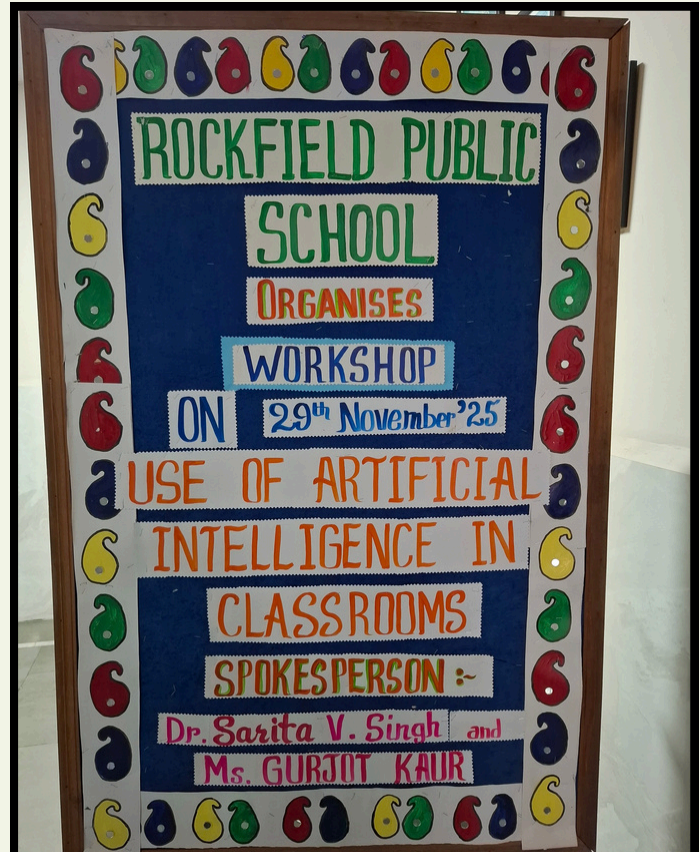 ROCKFIELD PUBLIC
SCHOOL
ORGANISES
WORKSHOP
ON 29th November'25
USE OF ARTIFICIAL
INTELLIGENCE IN
CLASSROOMS
SPOKESPERSON :~
Dr. Sarita V. Singh and
Ms. GURJOT KAUR